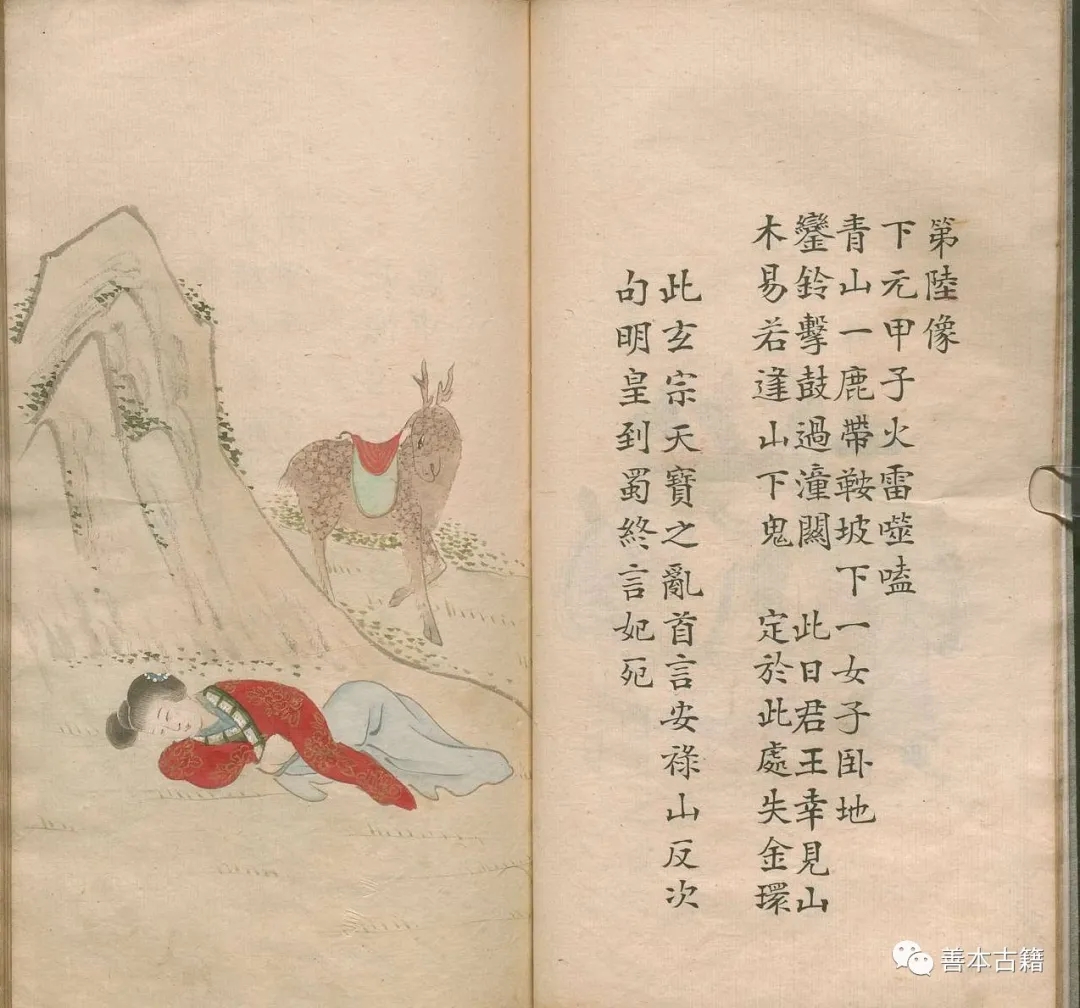 第陸像
下元甲子火雷噬嗑
青山一鹿帶鞍坡下一女子臥地
鑾鈴擊鼓過潼關 此日君王幸見山
木易若逢山下鬼 定於此處失金環
此玄宗天寶之亂首言安祿山反次
句明皇到蜀終言妃死
善本古籍